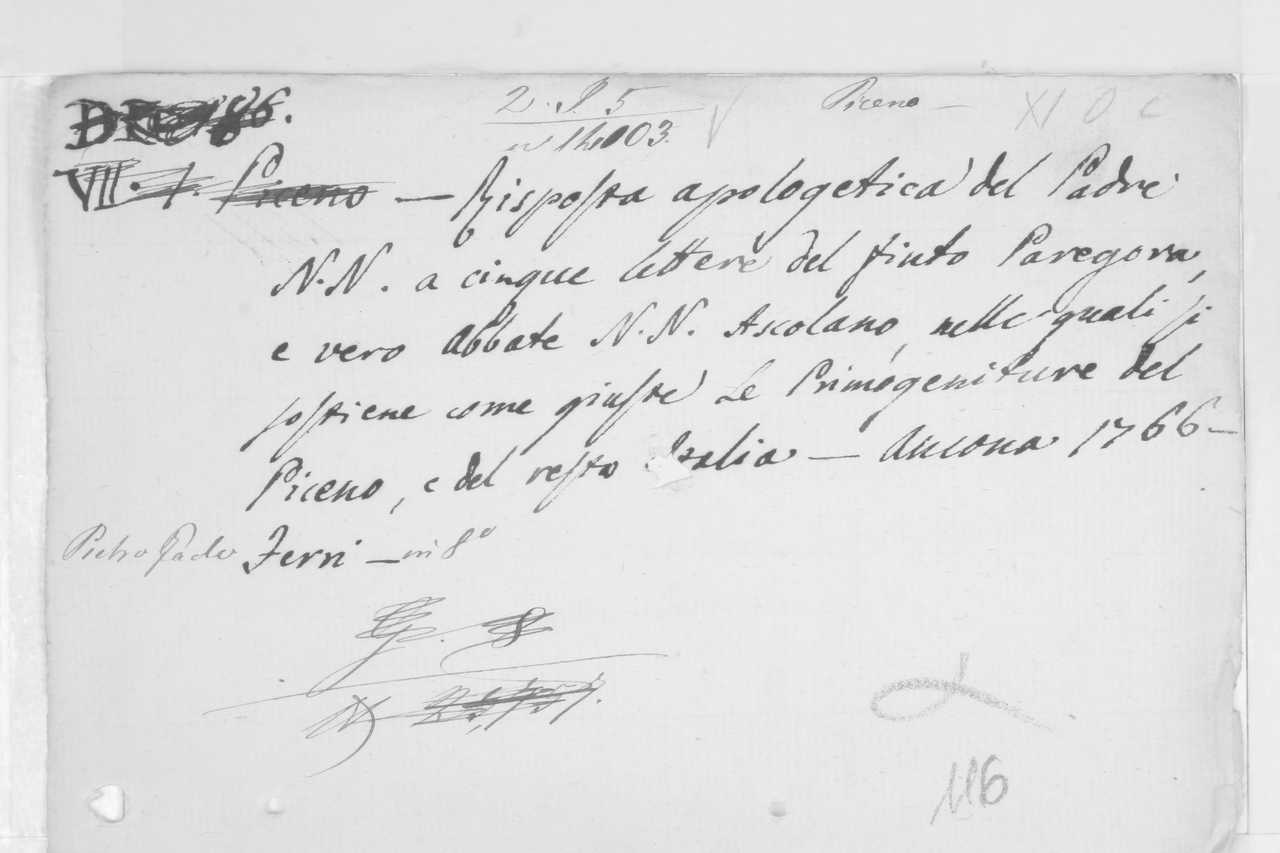 2. P. 5 Piceno —
n 14003. XI O C
VII. 1. Piceno — Risposta apologetica del Padre
N.N. a cinque lettere del finto Paregora,
e vero Abbate N.N. Ascolano, nelle quali si
sostiene come giuste le Primogeniture del
Piceno, e del resto Italia — Ancona 1766 —
Pietro Paolo Ferri — in 8°
116